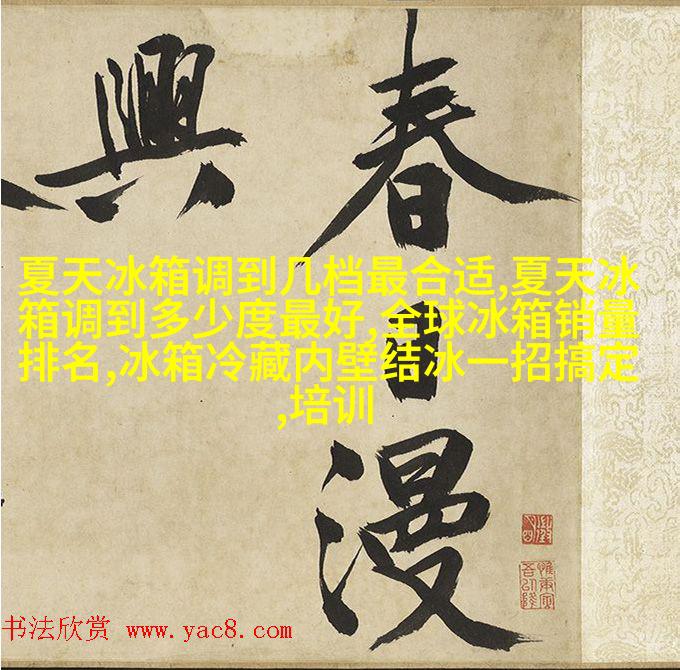 春日漫
興
夏天冰箱调到几档最合适,夏天冰
箱调到多少度最好,全球冰箱销量
排名,冰箱冷藏内壁结冰一招搞定
,培训
书法欣赏 www.yac8.com